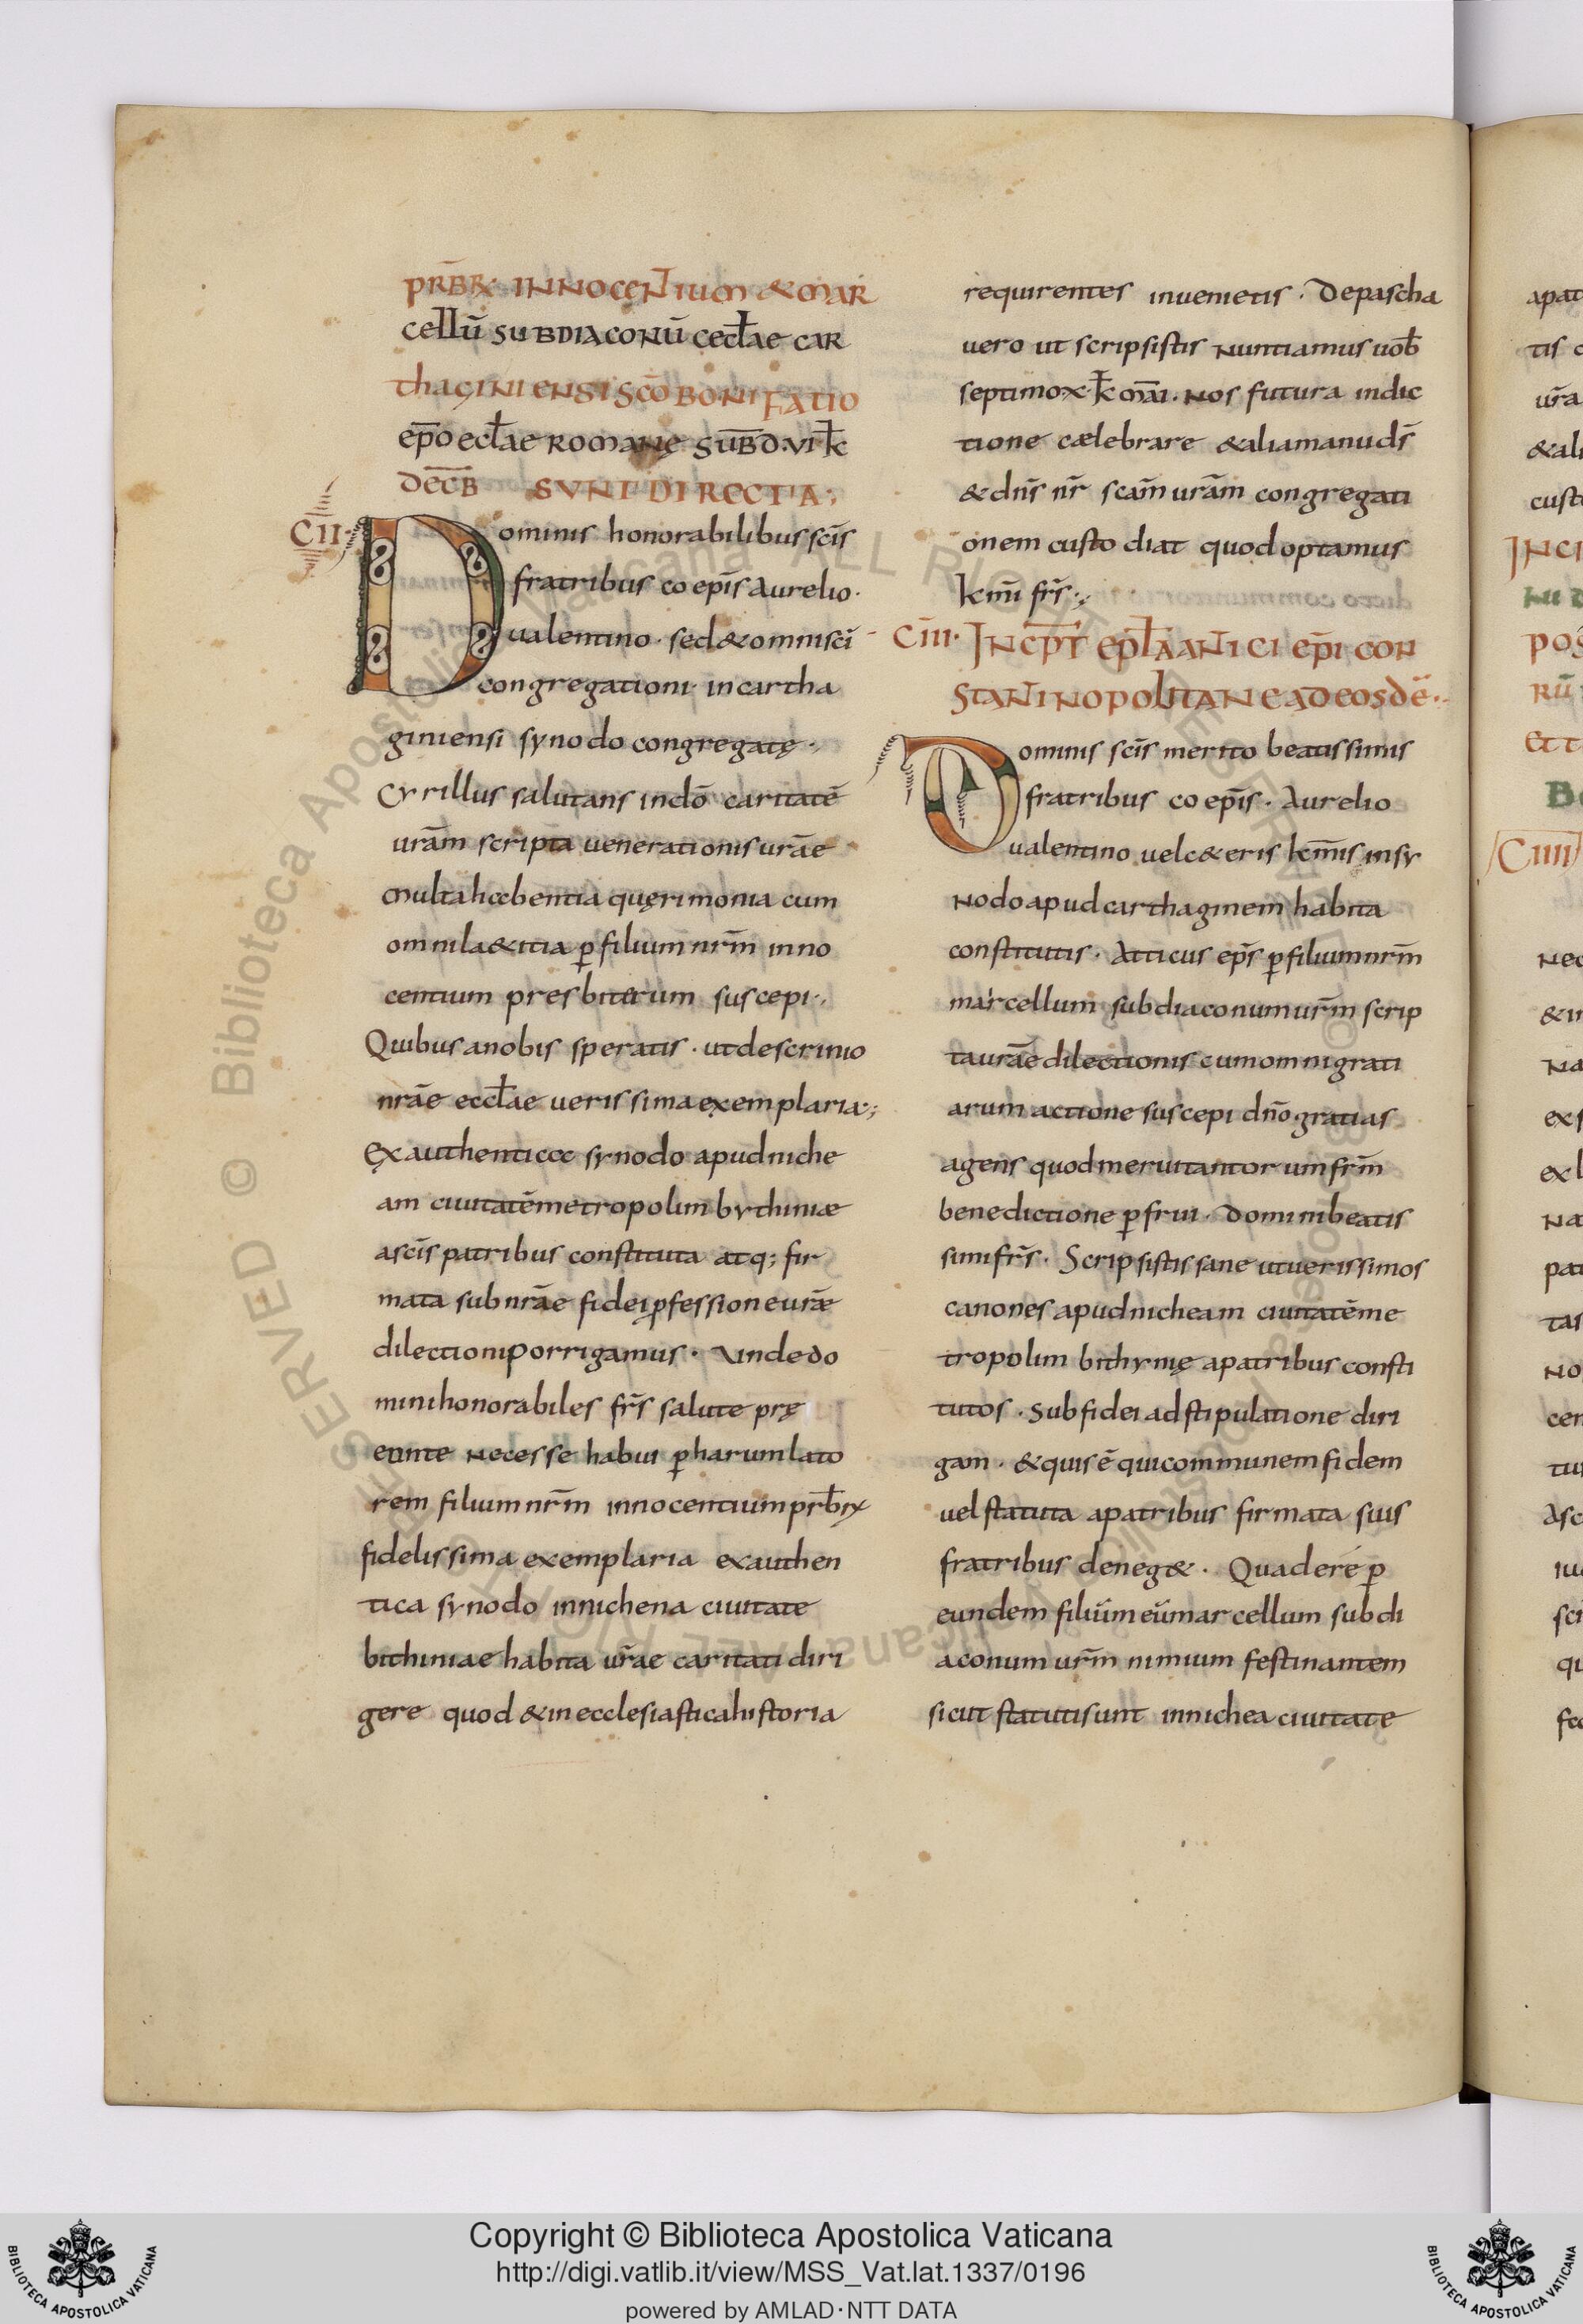 PR̄BR· INNOCENTIUM & MAR
cellū SUBDIACONŪ cecł̄ae CAR
thaginiensi scō BONIFATIO
ep̄o ecł̄ae ROMANĘ SUB D. VI k̄
DEC̄B SVNT DIRECTA;
CII·
Dominis honorabilibus sc̄is
fratribus coep̄is aurelio·
ualentino· sed & omni sc̄i
congregationi· in cartha
giniensi synodo congregatę·
Cyrillus salutans in dō caritatē
urām scripta uenerationis urāe
Multa habentia quęrimonia cum
omni la&itia p̱ filium nr̄m inno
centium presbiterum suscepi·,
Quibus a nobis speratis· ut de scrinio
nrāe eccł̄ae uerissima exemplaria·;
Ex authentica synodo apud niche
am ciuitatē metropolim bythiniæ
a sc̄is patribus constituta atq; fir
mata sub nrāe fidei ꝓfessione urǣ
dilectioni porrigamus· Vnde do
mini honorabiles fr̄s salute prę
eunte necesse habui p̱ harum lato
rem filium nr̄m innocentium prb̄rx
fidelissima exemplaria ex authen
tica synodo in nichena ciuitate
bithiniae habita ur̄ae caritati diri
gere quod & in ecclesiastica historia
requirentes inuenietis· De pascha
uero ut scripsistis nuntiamus uob̄
septimo x k̄ mai· nos futura indic
tione cælebrare & alia manu ds̄
& dn̄s nr̄ scām urām congregati
onem custodiat quod optamus
km̄i fr̄s·,
CIII· INCPT̄ EPŁ̄A ANICI EP̄I CON
STANTINOPOLITANE AD EOSDĒ·
Dominis sc̄is merito beatissimis
fratribus coep̄is· Aurelio
ualentino uel c&eris km̄is in sy
nodo apud carthaginem habita
constitutis· Atticus ep̄s p̱ filium nr̄m
marcellum subdiaconum ur̄m scrip
ta urāe dilectionis cum omni grati
arum actione suscepi dn̄o gratias
agens quod merui tantorum fr̄m
benedictione p̱frui· domini beatis
simi fr̄s· Scripsistis sane ut uerissimos
canones apud nicheam ciuitatē me
tropolim bithynię a patribus consti
tutos· Sub fidei adstipulatione diri
gam· & quis ē qui communem fidem
uel statuta a patribus firmata suis
fratribus deneg&· Qua de re p̱
eundem filiūm eūmarcellum subdi
aconum ur̄m nimium festinantem
sicut statuti sunt in nichea ciuitate
apat
tis
ur̄a
&ali
cust
INCI
NI
pos
RŪ
Et t
B
CIIII
nec
&in
na
exs
exl
na
pat
tas
no
cen
tu
Asc
iu
sci
qu
Copyright © Biblioteca Apostolica Vaticana
http://digi.vatlib.it/view/MSS_Vat.lat.1337/0196
powered by AMLAD·NTT DATA
BIBLIOTECA APOSTOLICA VATICANA
BIBLIOTECA APOSTOLICA VATICANA